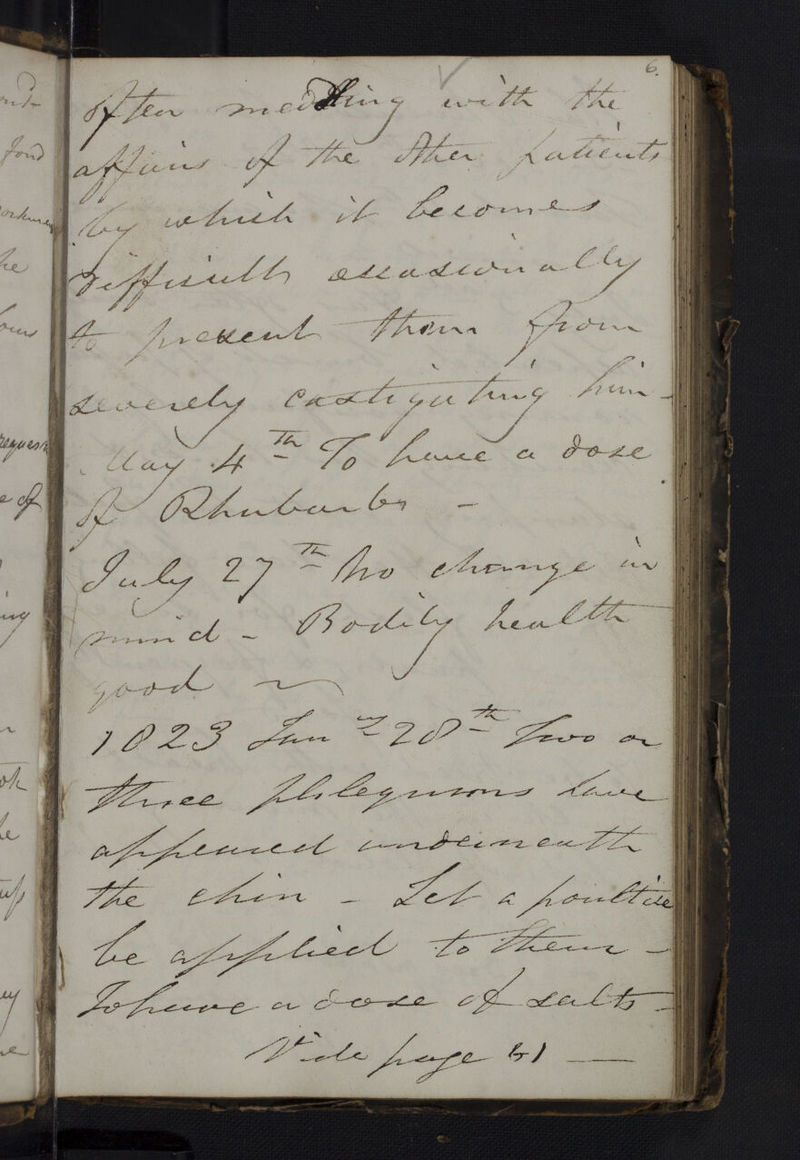 6.
often meddling with the
affairs of the other patients
by which it becomes
difficult occasionally
to prevent them from
severely castigating him -
May 4th To have a dose
of Rhubarb -
July 27th No change in
mind - Bodily health
good
1823 Jany 28th Two or
three phlegmons have
appeared underneath
the chin - Let a poultice
be applied to them -
To have a dose of salts -
Vide page 51 —